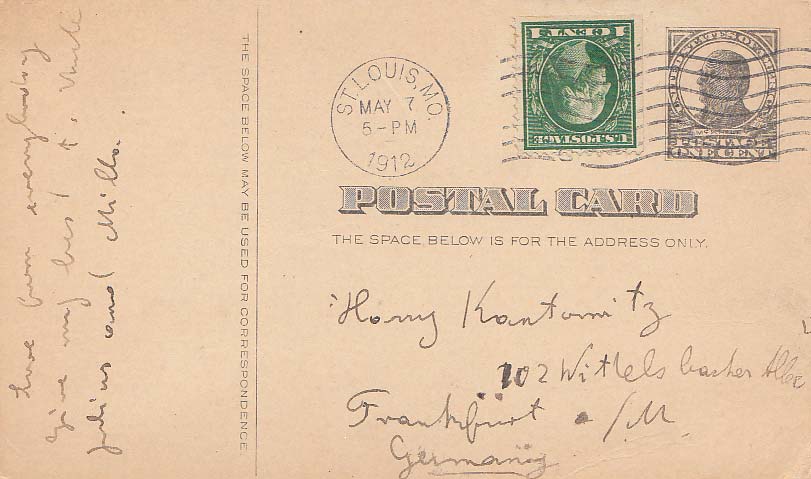 Love from everybody
Give my best to Uncle
Julius and Milla.
THE SPACE BELOW MAY BE USED FOR CORRESPONDENCE.
ST. LOUIS, MO.
MAY 7
5-PM
1912
U.S. POSTAGE
1 CENT 1
UNITED STATES OF AMERICA
POSTAGE
ONE CENT
POSTAL CARD
THE SPACE BELOW IS FOR THE ADDRESS ONLY.
Harry Kantorowitz
102 Wittelsbacher Allee
Frankfurt a/M
Germany